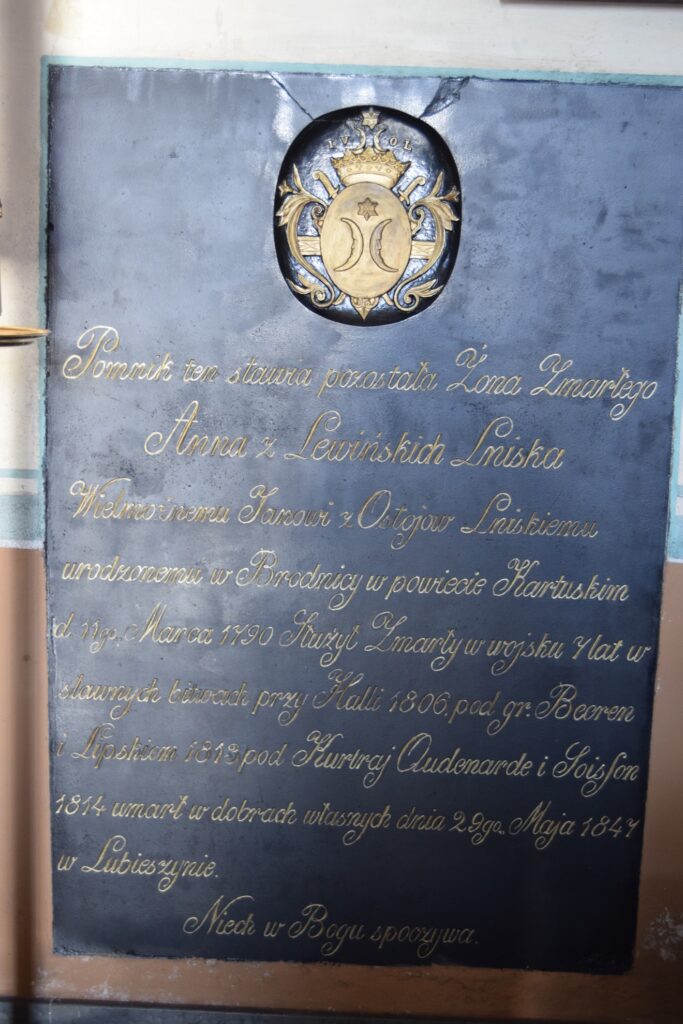 IV OL
Pomnik ten stawia pozostała Żona Zmarłego
Anna z Lewińskich Lniska
Wielmożnemu Janowi z Ostojow Lniskiemu
urodzonemu w Brodnicy w powiecie Kartuskim
d. 11go. Marca 1790 Służył Zmarły w wojsku 7 lat w
sławnych bitwach przy Halli 1806, pod gr. Beeren
i Lipskiem 1813 pod Kurtraj Oudenarde i Soisson
1814 umarł w dobrach własnych dnia 29go. Maja 1847
w Lubieszynie.
Niech w Bogu spoczywa.